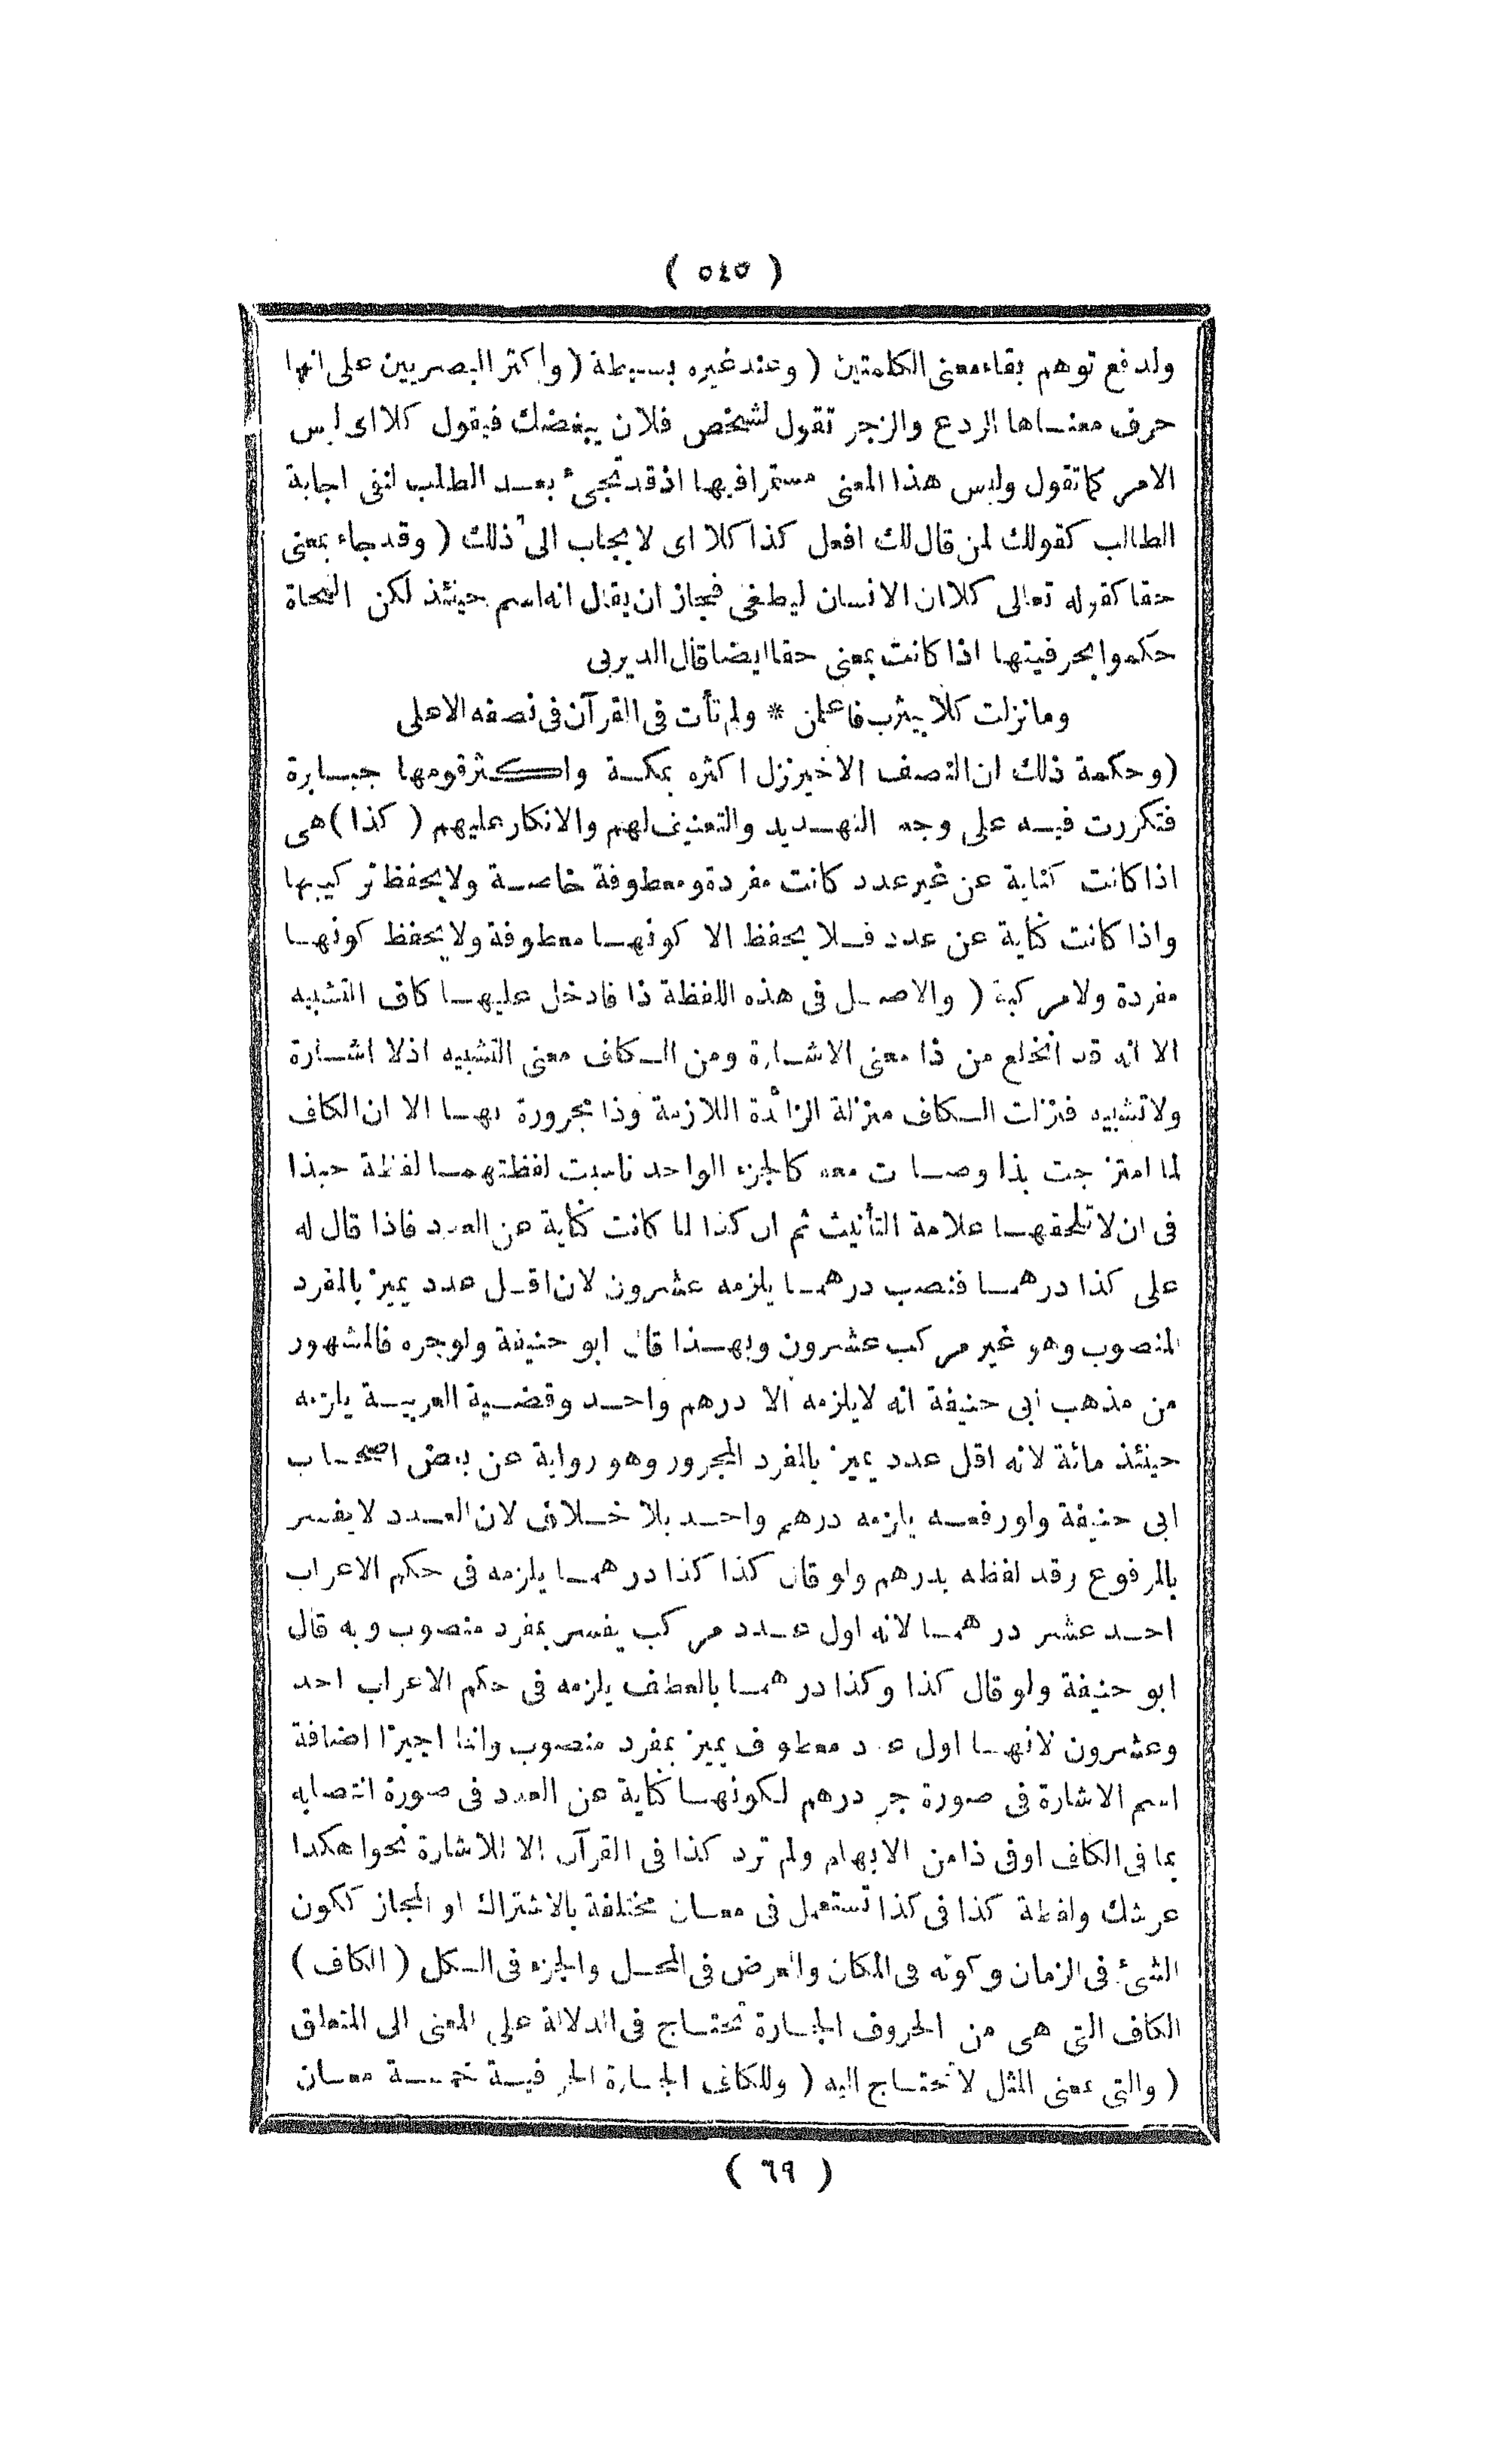 ( ٥٤٥ )
ولدفع توهم بقاء معنى الكلمتين ( وعند غيره بسيطة ( واكثر البصريين على انها
حرف معناها الردع والزجر تقول لشخص فلان يبغضك فيقول كلا اى ليس
الامر كما تقول وليس هذا المعنى مستمرا فيها اذ قد تجىء بعد الطلب لنفى اجابة
الطالب كقولك لمن قال لك افعل كذا كلا اى لا يجاب الى ذلك ( وقد جاء بمعنى
حقا كقوله تعالى كلا ان الانسان ليطغى فجاز ان يقال انه اسم حينئذ لكن النحاة
حكموا بحرفيتها اذا كانت بمعنى حقا ايضا قال الديربى
وما نزلت كلا بيثرب فاعلمن * ولم تأت فى القرآن فى نصفه الاعلى
(وحكمة ذلك ان النصف الاخير نزل اكثره بمكة واكثر قومها جبابرة
فتكررت فيه على وجه التهديد والتعنيف لهم والانكار عليهم ( كذا ) هى
اذا كانت كناية عن غير عدد كانت مفردة ومعطوفة خاصة ولا يحفظ تركيبها
واذا كانت كناية عن عدد فلا يحفظ الا كونها معطوفة ولا يحفظ كونها
مفردة ولا مركبة ( والاصل فى هذه اللفظة ذا فادخل عليها كاف التشبيه
الا انه قد انخلع من ذا معنى الاشارة ومن الكاف معنى التشبيه اذ لا اشارة
ولا تشبيه فنزلت الكاف منزلة الزائدة اللازمة وذا مجرورة بها الا ان الكاف
لما امتزجت بذا وصارت معه كالجزء الواحد ناسبت لفظتهما لفظة حبذا
فى ان لا تلحقها علامة التأنيث ثم ان كذا لما كانت كناية عن العدد فاذا قال له
على كذا درهما فنصب درهما يلزمه عشرون لان اقل عدد يميز بالمفرد
المنصوب وهو غير مركب عشرون وبهذا قال ابو حنيفة ولو جره فالمشهور
من مذهب ابى حنيفة انه لا يلزمه الا درهم واحد وقضية العربية يلزمه
حينئذ مائة لانه اقل عدد يميز بالمفرد المجرور وهو رواية عن بعض اصحاب
ابى حنيفة ولو رفعه يلزمه درهم واحد بلا خلاف لان العدد لا يفسر
بالمرفوع وقد لفظه بدرهم ولو قال كذا كذا درهما يلزمه فى حكم الاعراب
احد عشر درهما لانه اول عدد مركب يفسر بمفرد منصوب وبه قال
ابو حنيفة ولو قال كذا وكذا درهما بالعطف يلزمه فى حكم الاعراب احد
وعشرون لانها اول عدد معطوف يميز بمفرد منصوب وانما اجيزا اضافة
اسم الاشارة فى صورة جر درهم لكونها كناية عن العدد فى صورة انتصابه
بما فى الكاف او فى ذا من الابهام ولم ترد كذا فى القرآن الا للاشارة نحو اهكذا
عرشك ولفظة كذا فى كذا تستعمل فى معان مختلفة بالاشتراك او المجاز ككون
الشىء فى الزمان وكونه فى المكان والعرض فى المحل والجزء فى الكل ( الكاف )
الكاف التى هى من الحروف الجارة تحتاج فى الدلالة على المعنى الى المتعلق
( والتى بمعنى المثل لا تحتاج اليه ( وللكاف الجارة الحرفية خمسة معان
( ٦٩ )